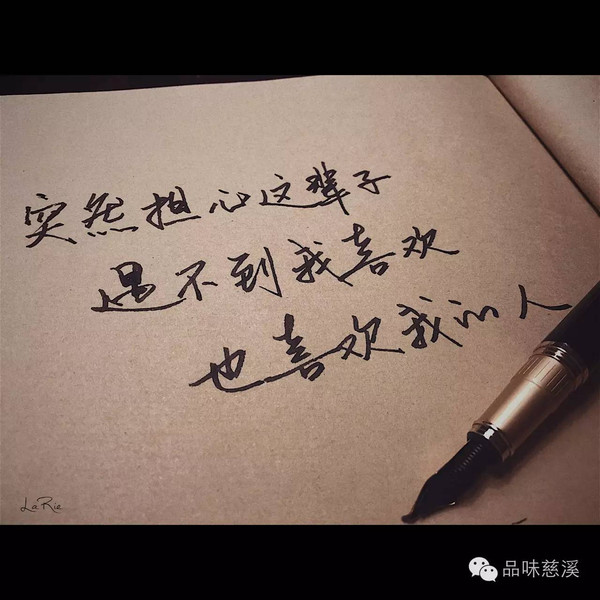 突然担心这辈子
遇不到我喜欢
也喜欢我的人
LaRie
品味慈溪